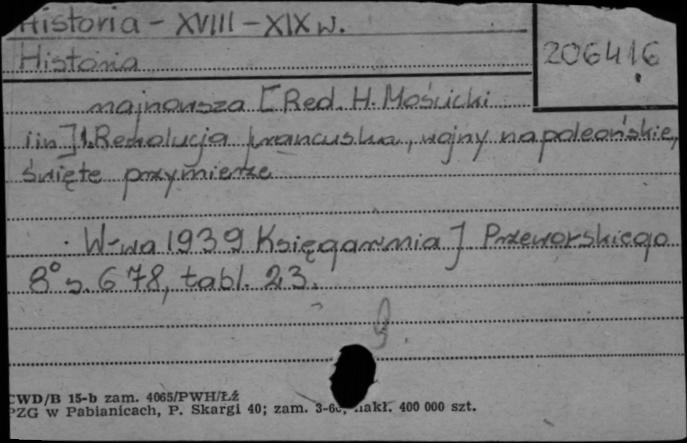 Historia - XVIII - XIX w.
Historia
206416
najnowsza [Red. H. Mościcki
i in.] 1. Rewolucja francuska, wojny napoleońskie,
Święte przymierze
W-wa 1939 Księgarnia J Przeworskiego
8° s. 678, tabl. 23.
CWD/B 15-b zam. 4065/PWH/ŁŹ
PZG w Pabianicach, P. Skargi 40; zam. nakł. 400 000 szt.